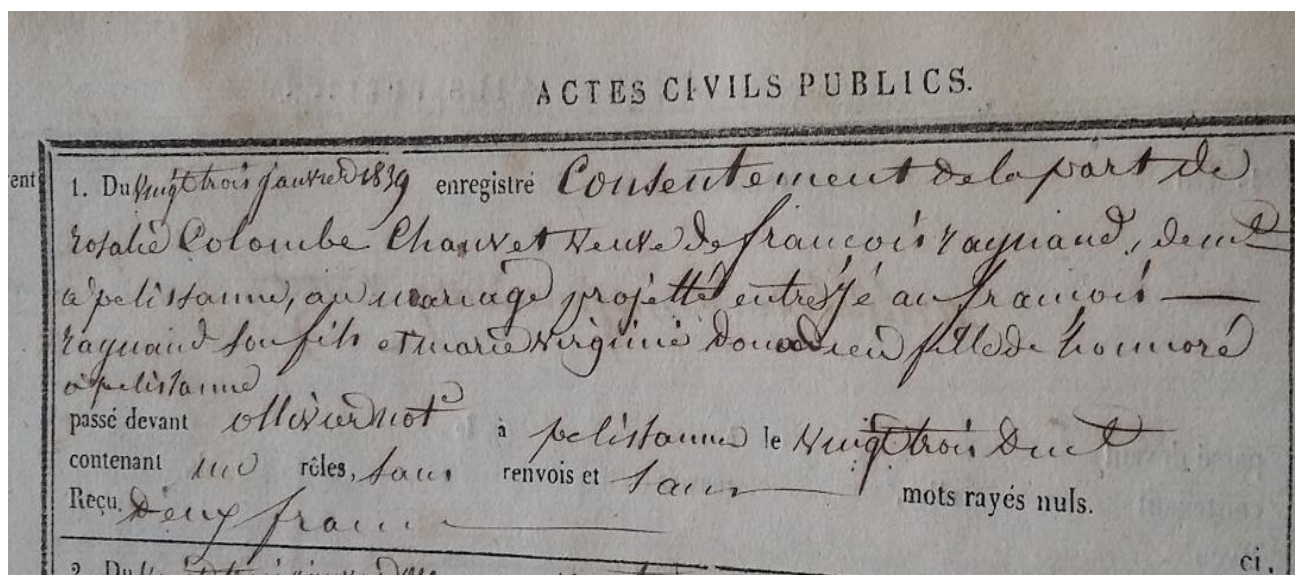 ACTES CIVILS PUBLICS.
ent
1. Du vingt trois janvier 1839 enregistré Consentement de la part de
rosalie Colombe Chauvet veuve de francois raynaud, demt
a pelissanne, au mariage projetté entre jean francois —
raynaud son fils et marie virginie donadieu fille de honnoré
a pelissanne
passé devant ollivier not à pelissanne le vingt trois duct
contenant un rôles, sans renvois et sans — mots rayés nuls.
Reçu, deux francs —
ci.
2. Du